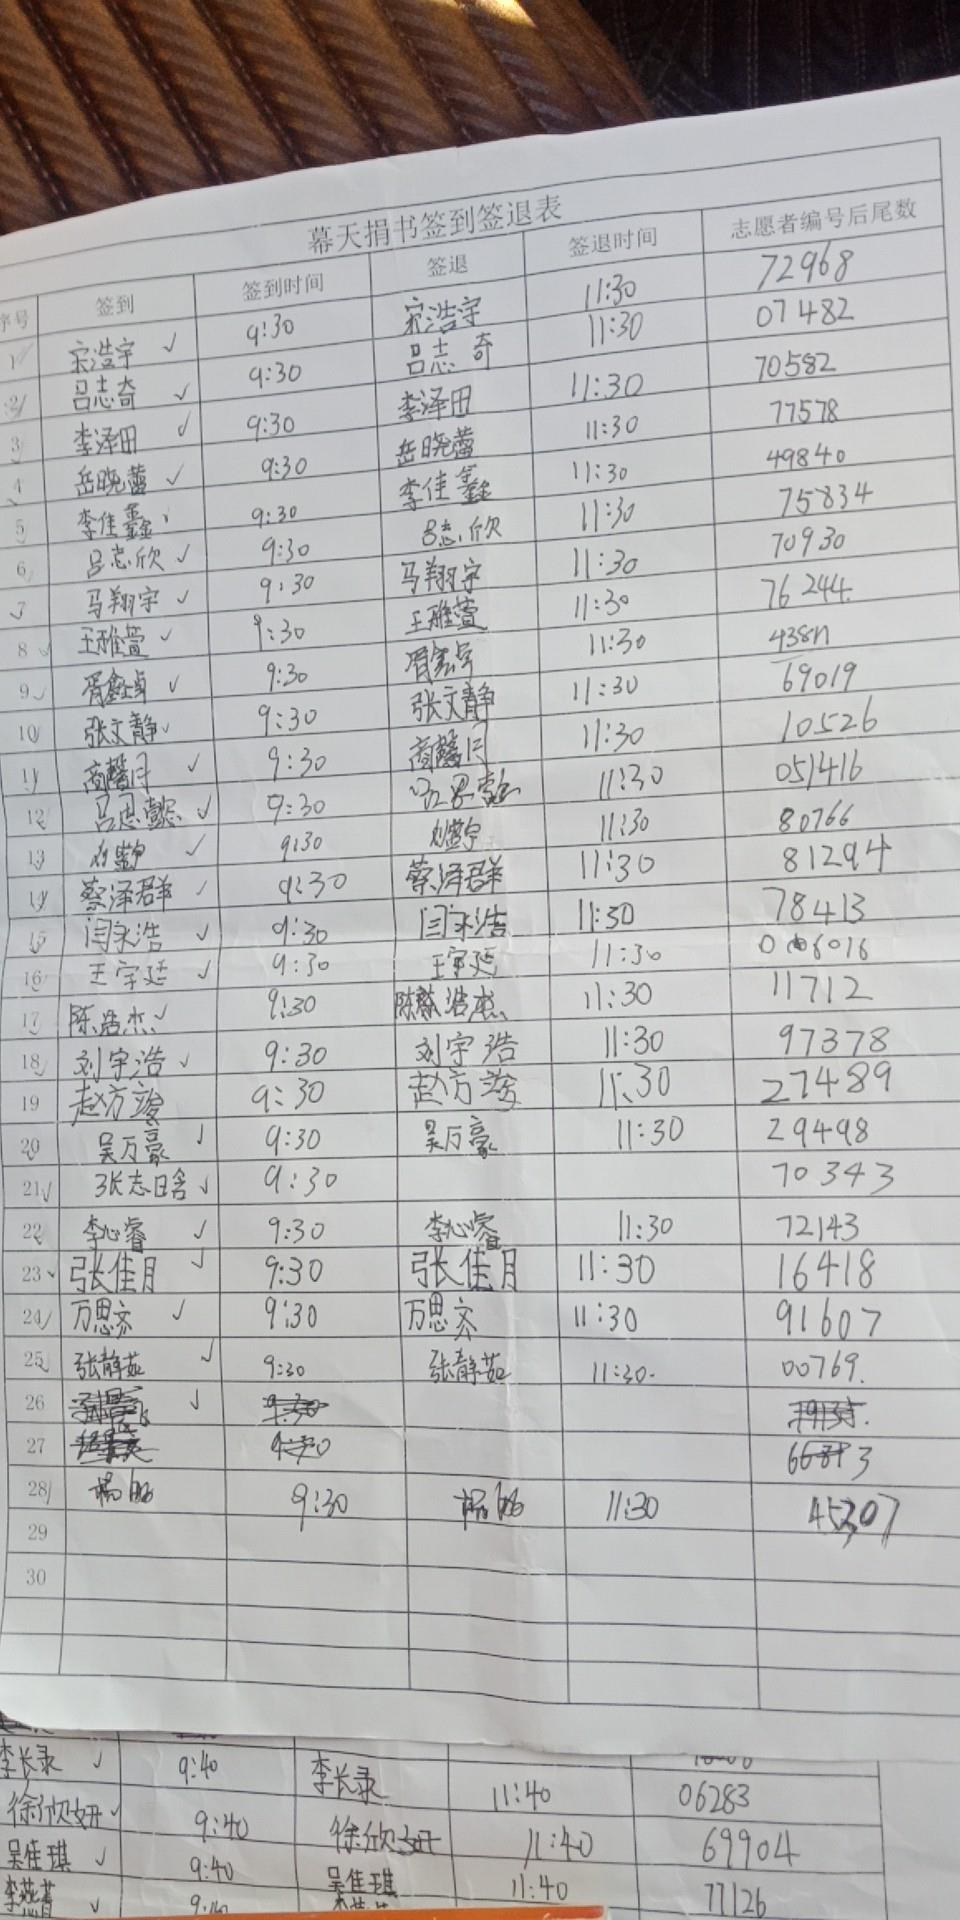 幕天捐书签到签退表
序号 签到 签到时间 签退 签退时间 志愿者编号后尾数
1 宋浩宇 ✓ 9:30 宋浩宇 11:30 72968
2 吕志奇 ✓ 9:30 吕志奇 11:30 07482
3 李泽田 ✓ 9:30 李泽田 11:30 70582
4 岳晓蕾 ✓ 9:30 岳晓蕾 11:30 77578
5 李佳鑫 9:30 李佳鑫 11:30 49840
6 吕志欣 ✓ 9:30 吕志欣 11:30 75834
7 马翔宇 ✓ 9:30 马翔宇 11:30 70930
8 王雅萱 ✓ 9:30 王雅萱 11:30 76244
9 ✓ 9:30 11:30
10 张文静 ✓ 9:30 张文静 11:30 69019
11 商馨月 ✓ 9:30 商馨月 11:30 10526
12 ✓ 9:30 11:30 051416
13 ✓ 9:30 11:30 80766
14 蔡泽群 ✓ 9:30 蔡泽群 11:30 81294
15 闫永浩 ✓ 9:30 闫永浩 11:30 78413
16 王宇廷 ✓ 9:30 王宇廷 11:30
17 陈浩杰 ✓ 9:30 陈浩杰 11:30 11712
18 刘宇浩 ✓ 9:30 刘宇浩 11:30 97378
19 赵方竣 9:30 赵方竣 11:30 27489
20 吴万豪 ✓ 9:30 吴万豪 11:30 29498
21 张志晗 ✓ 9:30 70343
22 李心睿 ✓ 9:30 李心睿 11:30 72143
23 张佳月 ✓ 9:30 张佳月 11:30 16418
24 万思齐 ✓ 9:30 万思齐 11:30 91607
25 张静茹 ✓ 9:30 张静茹 11:30 00769
26 ✓ 9:30
27
28 9:30 11:30 45307
29
30
李长录 ✓ 9:40 李长录 11:40 06283
徐欣妍 ✓ 9:40 徐欣妍 11:40 69904
吴佳琪 ✓ 9:40 吴佳琪 11:40 77126
李燕菁 ✓